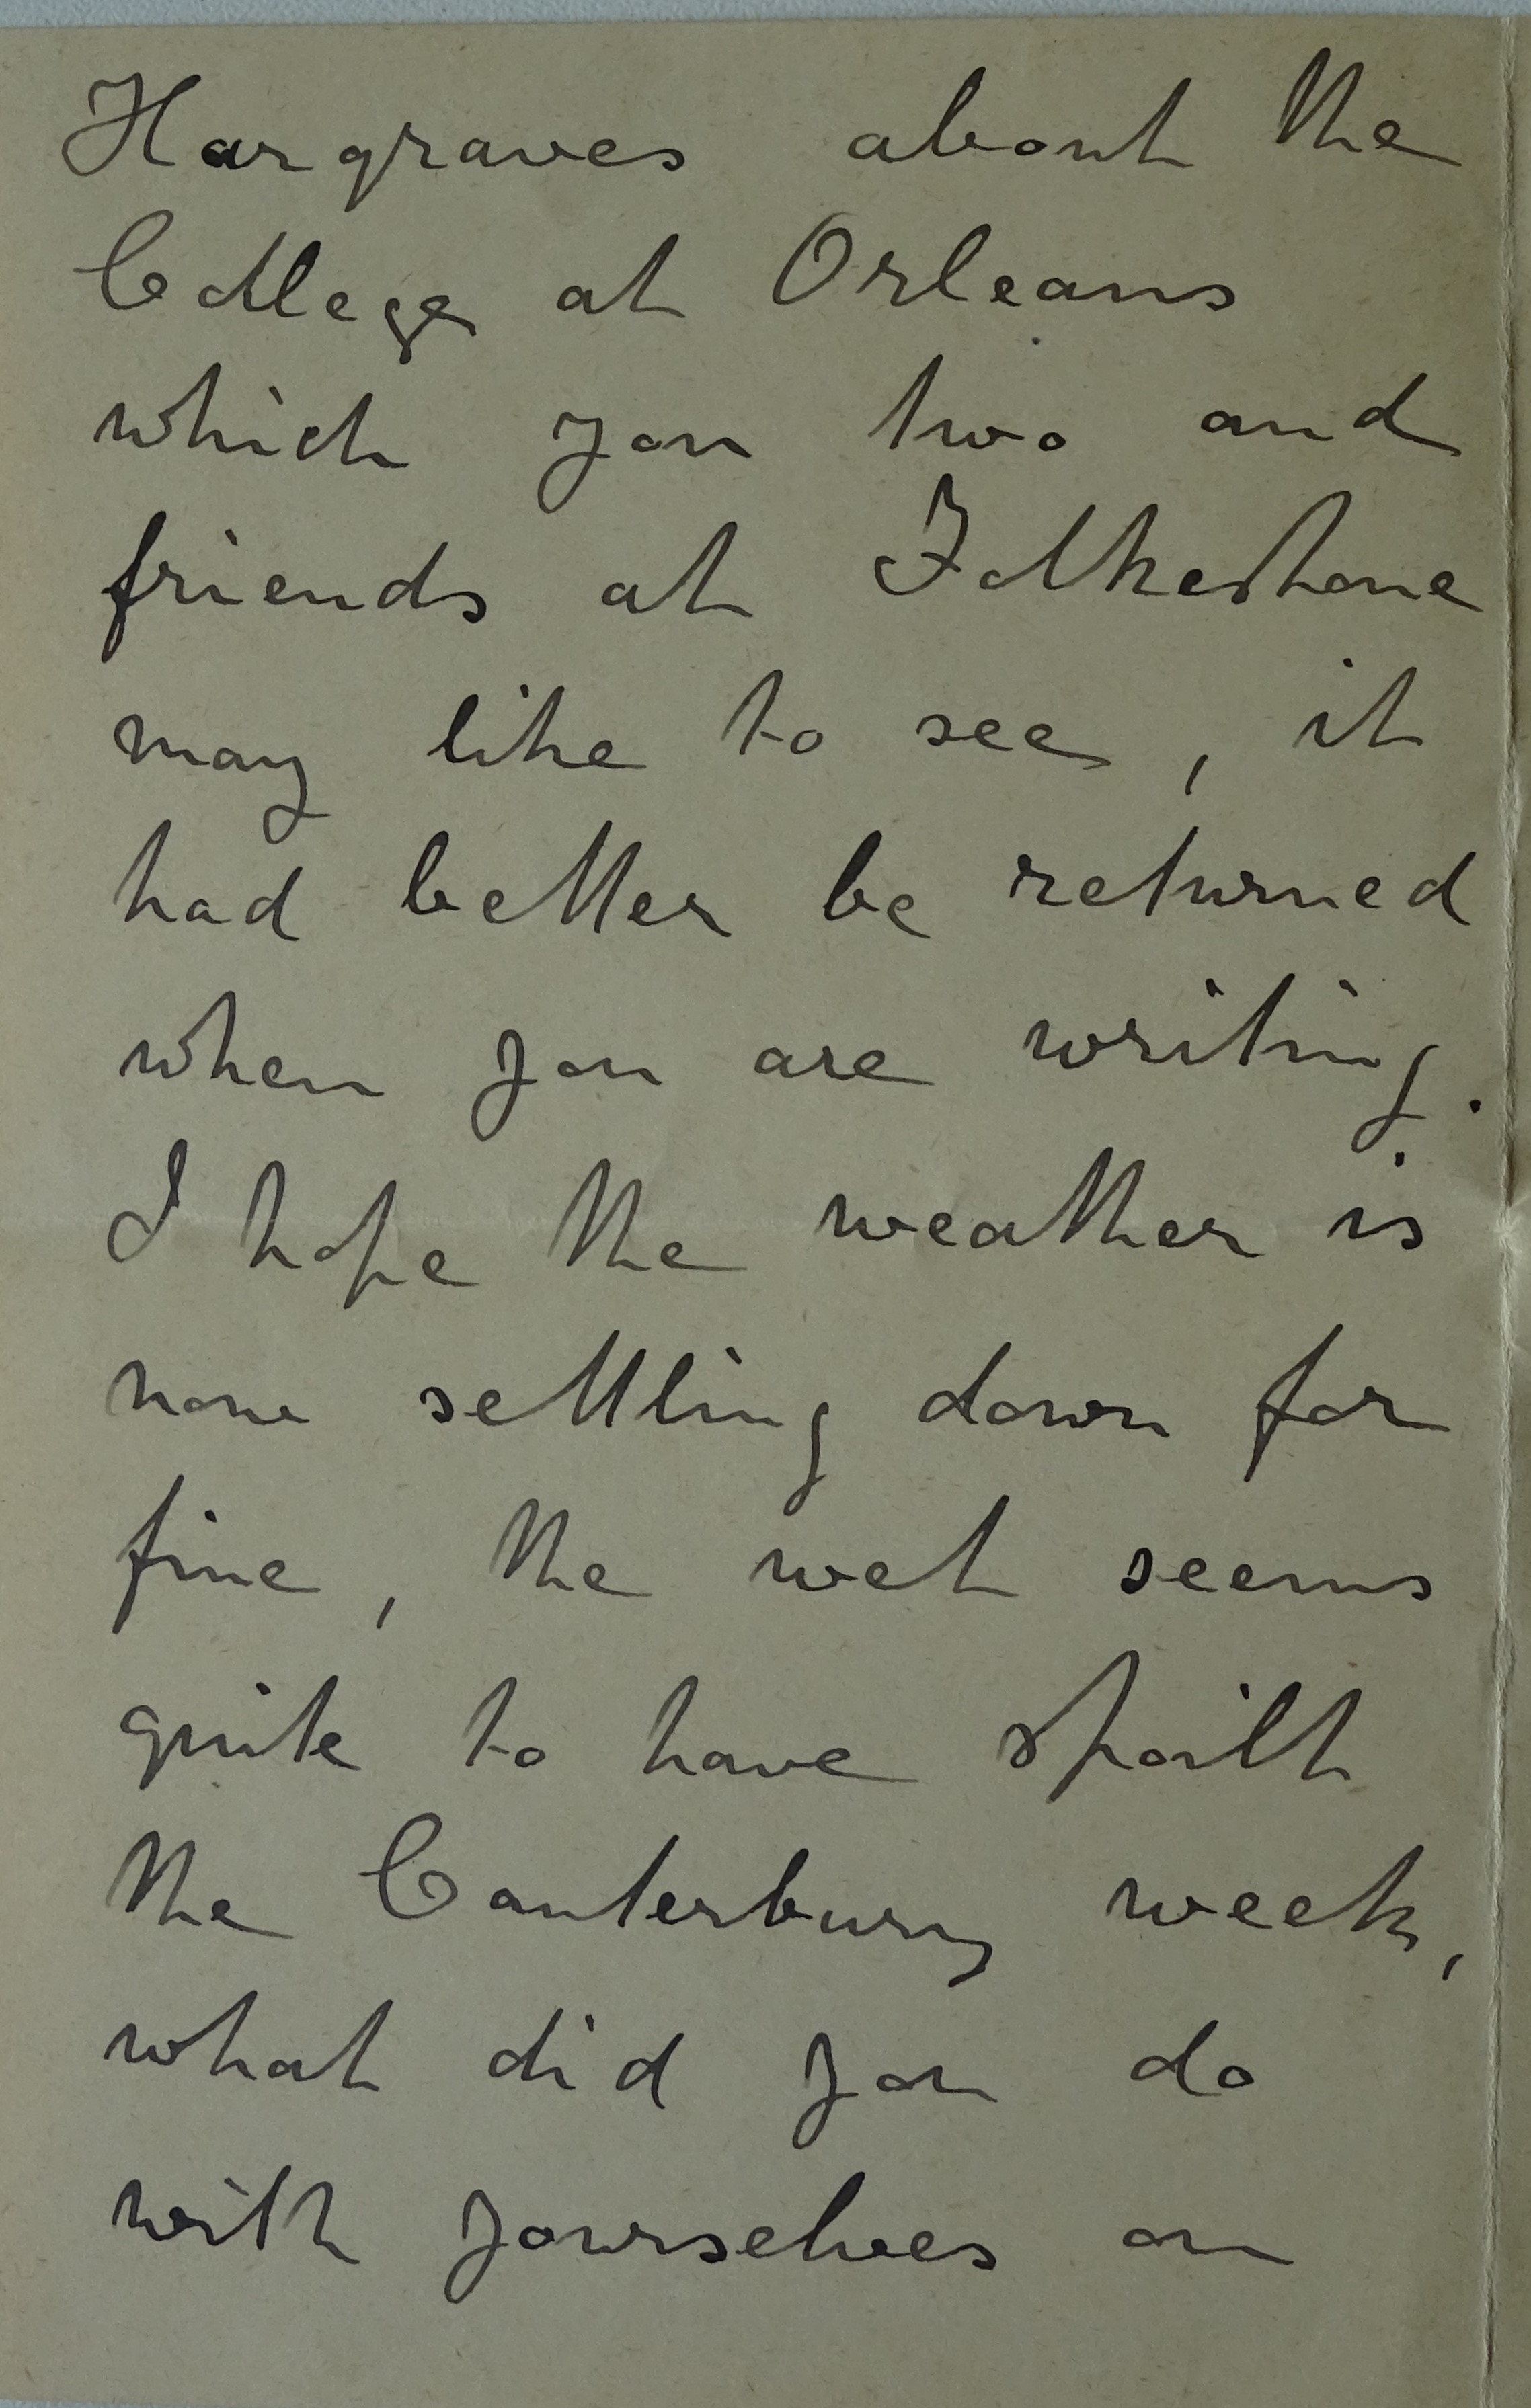 Hargraves about the
College at Orleans
which you two and
friends at Folkestone
may like to see, it
had better be returned
when you are writing.
I hope the weather is
now settling down for
fine, the wet seems
quite to have spoilt
the Canterbury week,
what did you do
with yourselves on